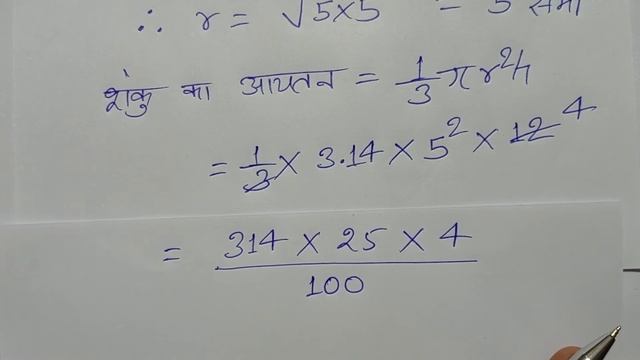 ∴ r = √5×5 = 5 सेमी
शंकु का आयतन = 1/3 π r²h
= 1/3 × 3.14 × 5² × 12 4
= 314 × 25 × 4 / 100